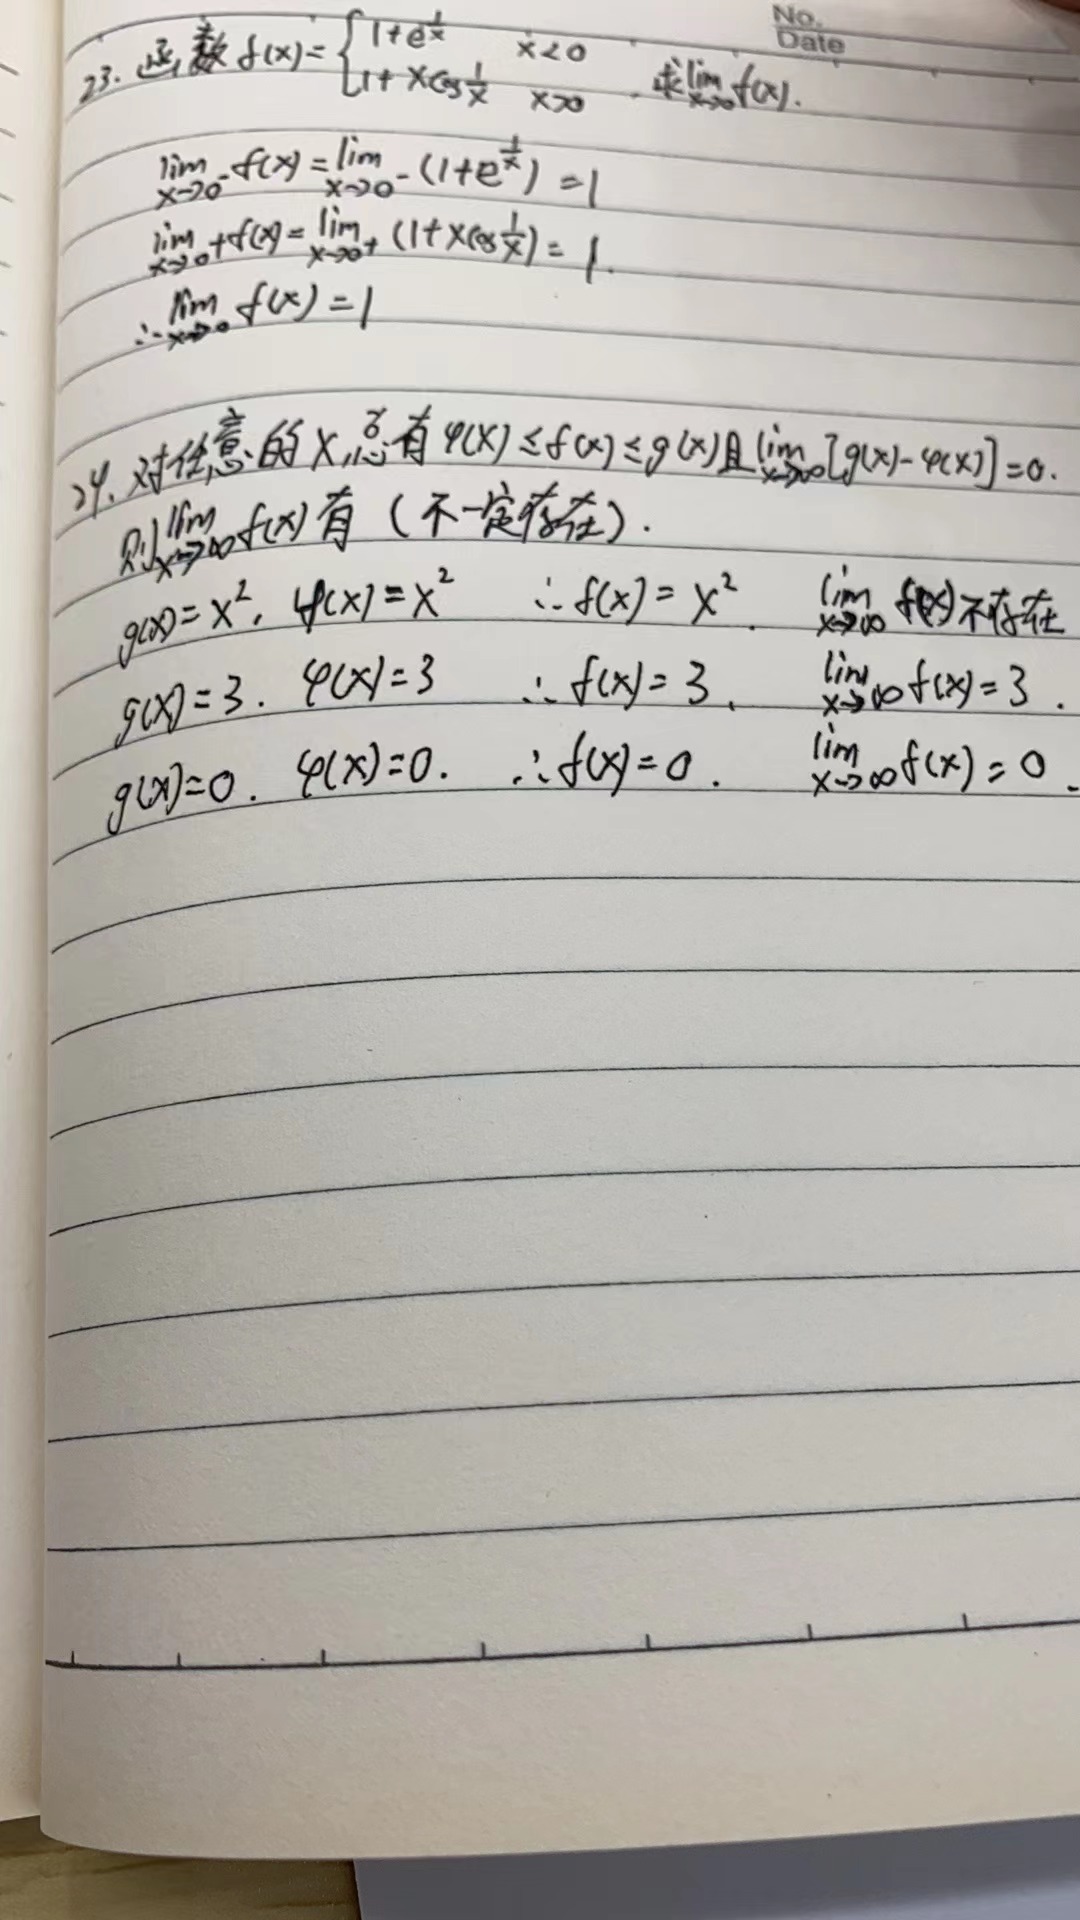 No.
Date
23. 函数 f(x)={1+e^{1/x} x<0
1+xcos1/x x>0 . 求lim x→0 f(x).
lim x→0⁻ f(x)=lim x→0⁻ (1+e^{1/x})=1
lim x→0+ f(x)=lim x→0+ (1+xcos1/x)=1.
∴lim x→0 f(x)=1
24. 对任意的x,总有φ(x)≤f(x)≤g(x)且lim x→∞[g(x)-φ(x)]=0.
则lim x→∞ f(x)有(不一定存在).
g(x)=x², φ(x)=x² ∴f(x)=x². lim x→∞ f(x)不存在
g(x)=3. φ(x)=3 ∴f(x)=3. lim x→∞ f(x)=3.
g(x)=0. φ(x)=0. ∴f(x)=0. lim x→∞ f(x)=0.